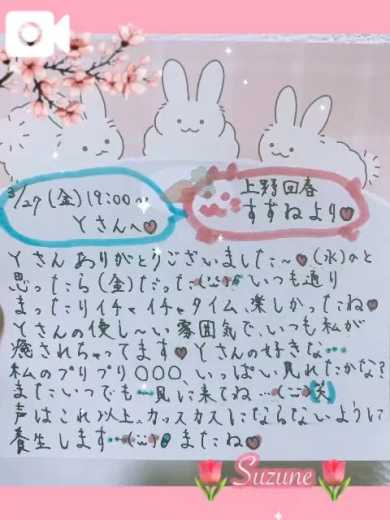 3/27(金)19:00〜
Yさんへ♥
上野回春
すずねより♥
Yさんありがとうございました〜♥(水)かと
思ったら(金)だった…いつも通り
まったりイチャイチャタイム、楽しかったね♥
Yさんの優し〜い雰囲気で、いつも私が
癒されちゃってます♥Yさんの好きな…
私のプリプリ○○○、いっぱい見れたかな?
またいつでも…見に来てね…(笑)
声はこれ以上、カッスカスにならないように
養生します…またね♥
Suzune